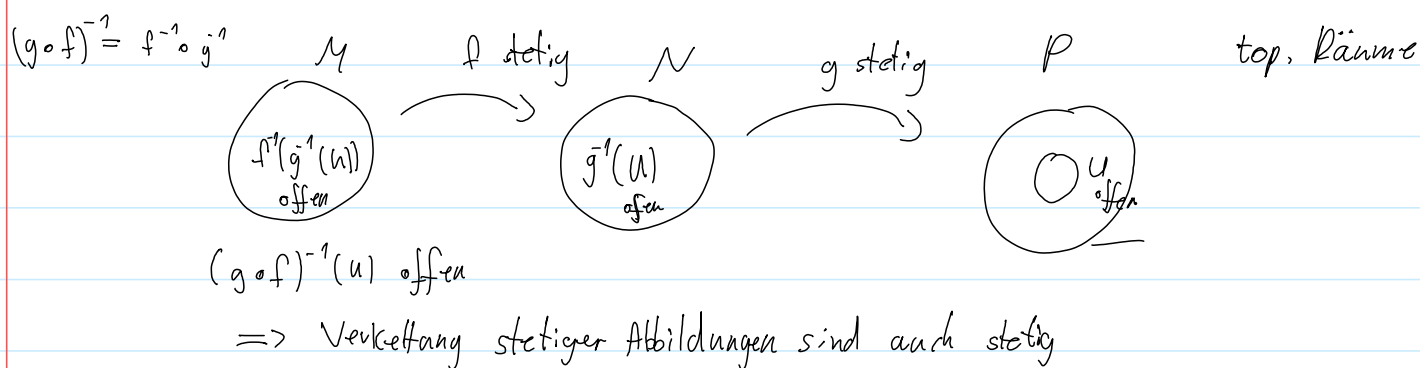 (g∘f)⁻¹ = f⁻¹∘g⁻¹ M f stetig N g stetig P top. Räume
f⁻¹(g⁻¹(U)) g⁻¹(U) U
offen offen offen
(g∘f)⁻¹(U) offen
=> Verkettung stetiger Abbildungen sind auch stetig